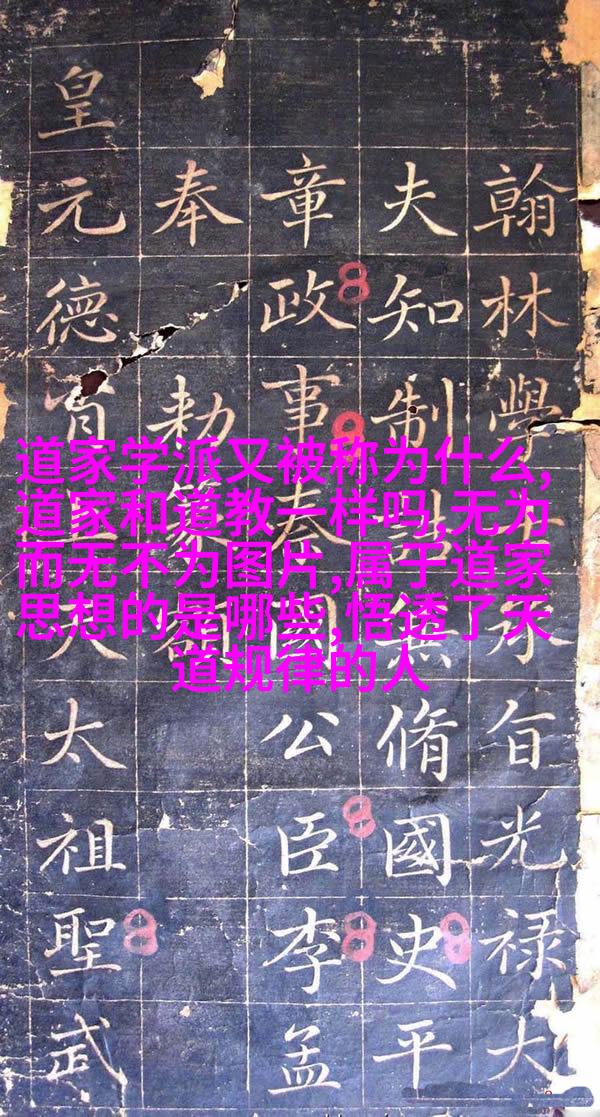 翰林學士承旨光禄大
夫知制誥兼脩國史平
章政事國公臣李孟
奉勅篆
皇元德大太祖聖武
道家学派又被称为什么,
道家和道教一样吗,无为
而无不为图片,属于道家
思想的是哪些,悟透了天
道规律的人